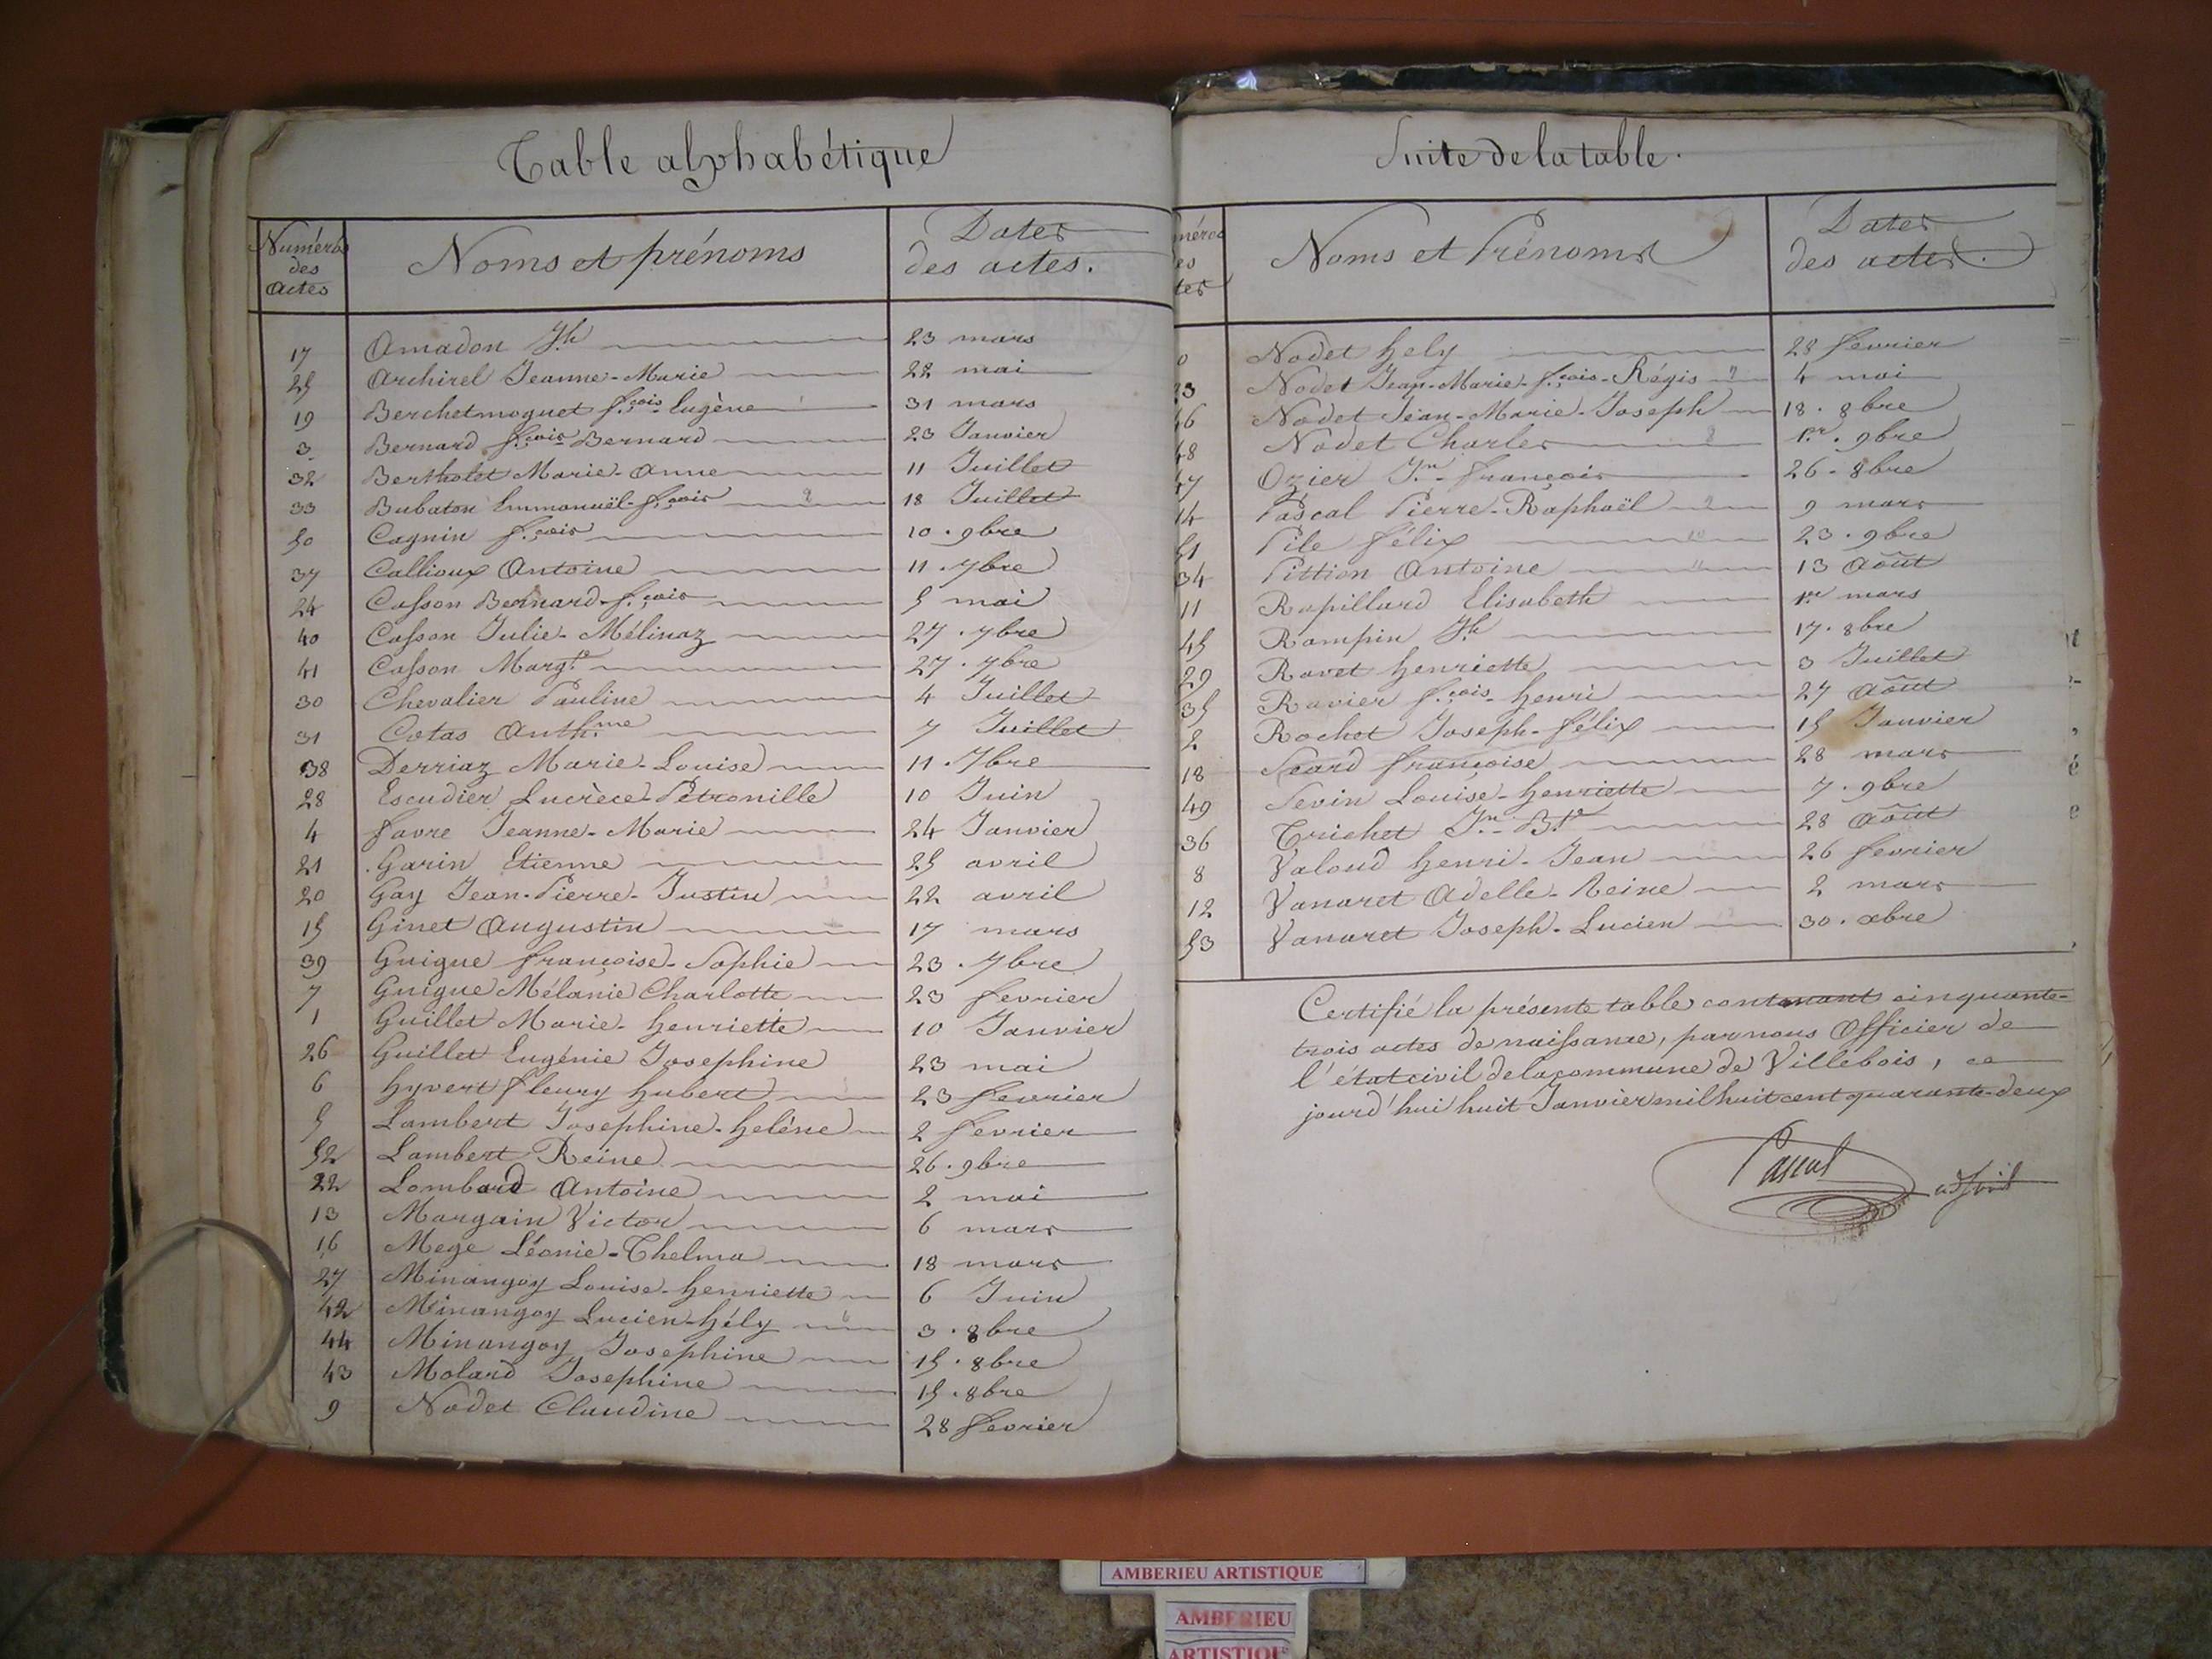 Table alphabétique
Numéros des Actes | Noms et prénoms | Dates des actes.
17 Amadon Jh 23 mars
25 Archirel Jeanne-Marie 22 mai
19 Berchetmoguet f.çois-Eugène 31 mars
3 Bernard f.çois-Bernard 23 Janvier
32 Bertholet Marie-Anne 11 Juillet
33 Bubaton Emmanuël-f.çois 18 Juillet
50 Cagnin f.çois 10. 9bre
37 Callioux Antoine 11. 7bre
24 Casson Bernard-f.çois 5 mai
40 Casson Julie-Mélinaz 27. 7bre
41 Casson Marg.te 27. 7bre
30 Chevalier Pauline 4 Juillet
31 Cotas Anth.me 7 Juillet
38 Derriaz Marie-Louise 11. 7bre
28 Escudier Lucrèce-Pétronille 10 Juin
4 favre Jeanne-Marie 24 Janvier
21 Garin Etienne 25 avril
20 Gay Jean-Pierre-Justin 22 avril
15 Ginet Augustin 17 mars
39 Guigue françoise-Sophie 23. 7bre
7 Guigue Mélanie Charlotte 23 fevrier
1 Guillet Marie-henriette 10 Janvier
26 Guillet Eugénie Josephine 23 mai
6 hyvert fleury hubert 23 fevrier
5 Lambert Josephine-helène 2 fevrier
52 Lambert Reine 26. 9bre
22 Lombard Antoine 2 mai
13 Margain Victor 6 mars
16 Mege Léonie-Thelma 18 mars
27 Minangoy Louise-henriette 6 Juin
42 Minangoy Lucien-hély 3. 8bre
44 Minangoy Josephine 15. 8bre
43 Molard Josephine 15. 8bre
9 Nodet Claudine 28 fevrier
Suite de la table.
méros es tes | Noms et Prénoms | Dates des actes.
0 Nodet hely 28 fevrier
23 Nodet Jean-Marie-f.çois-Régis 4 mai
46 Nodet Jean-Marie-Joseph 18. 8bre
48 Nodet Charles 1er. 9bre
47 Ozier Jn françois 26. 8bre
14 Pascal Pierre-Raphaël 9 mars
51 Pile félix 23. 9bre
34 Pittion Antoine 13 Août
11 Rapillard Elisabeth 1er mars
45 Rampin Jh 17. 8bre
29 Ravet henriette 3 Juillet
35 Ravier f.çois-henri 27 Août
2 Rochet Joseph-félix 15 Janvier
18 Seard françoise 28 mars
49 Sevin Louise-henriette 7. 9bre
36 Trichet Jn-B.te 28 Août
8 Valoud henri-Jean 26 fevrier
12 Vanaret Adelle-Reine 2 mars
53 Vanaret Joseph-Lucien 30. xbre
Certifié la présente table contenant cinquante-
trois actes de naissance, par nous Officier de
l'état civil de la commune de Villebois, ce
jourd'hui huit Janvier mil huit cent quarante-deux
Pascal
AMBERIEU ARTISTIQUE
AMBERIEU
ARTISTIQUE